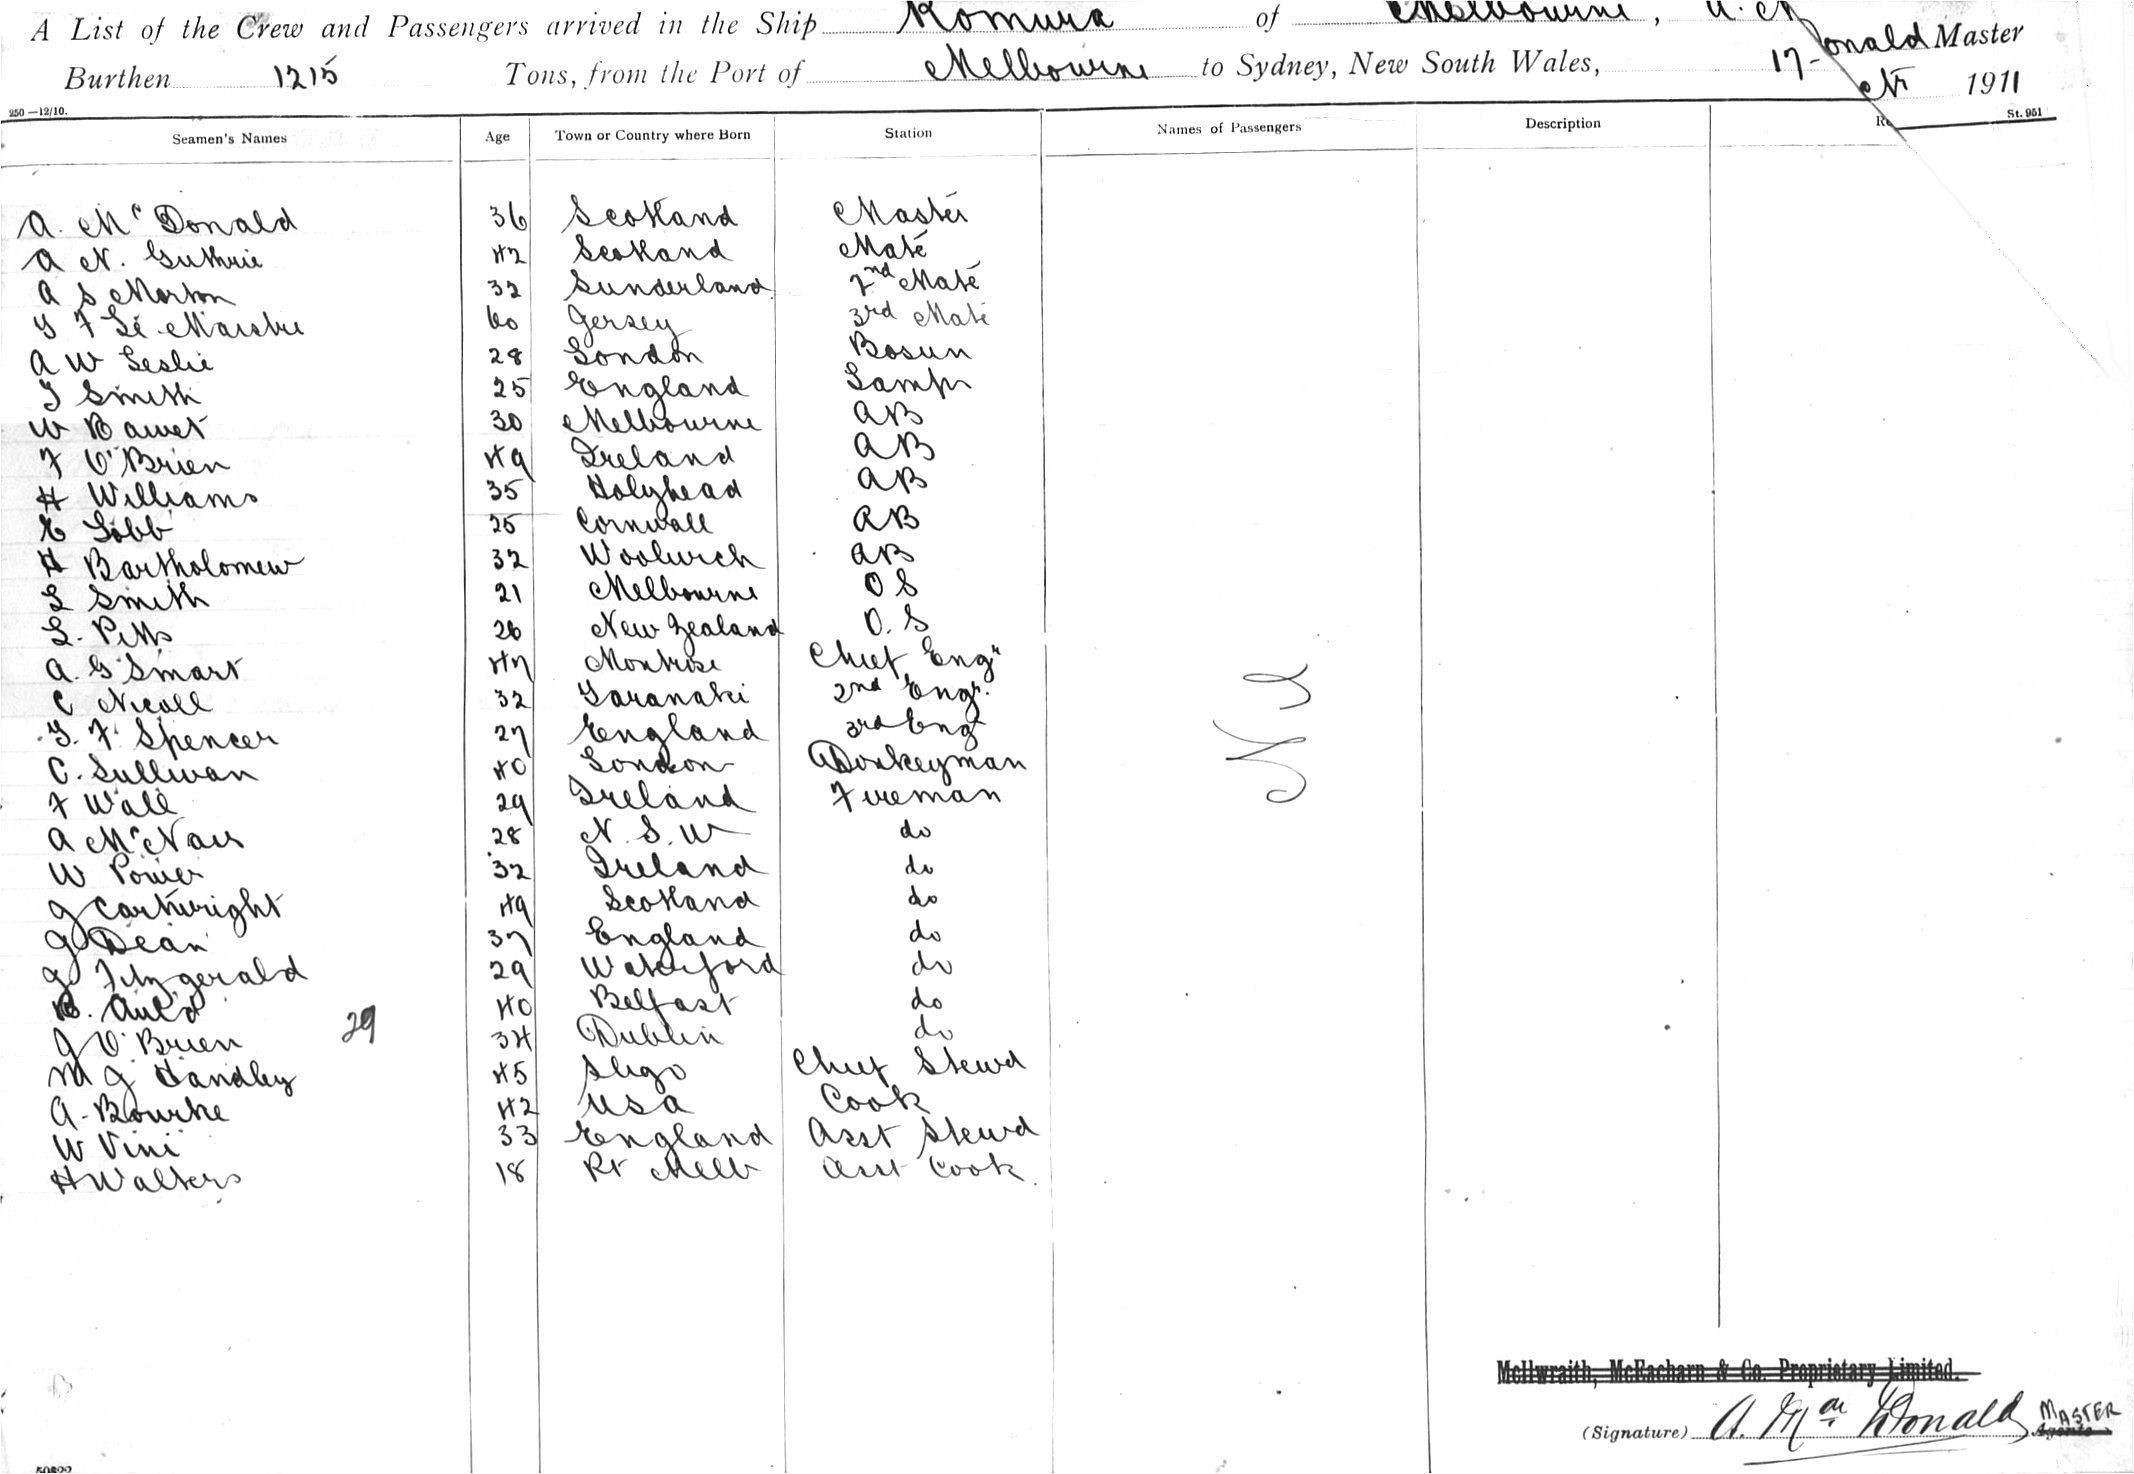 A List of the Crew and Passengers arrived in the Ship Komura of Melbourne, A. M
Donald Master
Burthen 1215 Tons, from the Port of Melbourne to Sydney, New South Wales, 17- 1911
250 —12/10. St. 951
Seamen's Names Age Town or Country where Born Station Names of Passengers Description
A. McDonald 36 Scotland Master
A N. Guthrie 42 Scotland Mate
A S Morton 32 Sunderland 2nd Mate
F Le Maistre 60 Jersey 3rd Mate
A W Leslie 28 London Bosun
Smith 25 England Lamps
W 30 Melbourne AB
F O'Brien 49 Ireland AB
H Williams 35 Holyhead AB
E Lobb 25 Cornwall AB
H Bartholomew 32 Woolwich AB
L Smith 21 Melbourne O S
L. Pitts 26 New Zealand O. S
A. G Smart 47 Montrose Chief Engr
C Nicoll 32 Taranaki 2nd Engr.
F Spencer 27 England 3rd Engr
C. Sullivan 40 London Donkeyman
F Wall 29 Ireland Fireman
A McNair 28 N. S. W do
W Power 32 Ireland do
J Cartwright 49 Scotland do
J Dean 37 England do
J Fitzgerald 29 Waterford do
B. Auld 40 Belfast do
J O'Brien 29 34 Dublin do
M J Handley 45 Sligo Chief Stewd
A. Bourke 42 USA Cook
W Vini 33 England Asst Stewd
H Walters 18 Pt Melb Asst Cook
Nil
McIlwraith, McEacharn & Co. Proprietary Limited.
(Signature) A. Mac Donald MASTER
Agents
50822